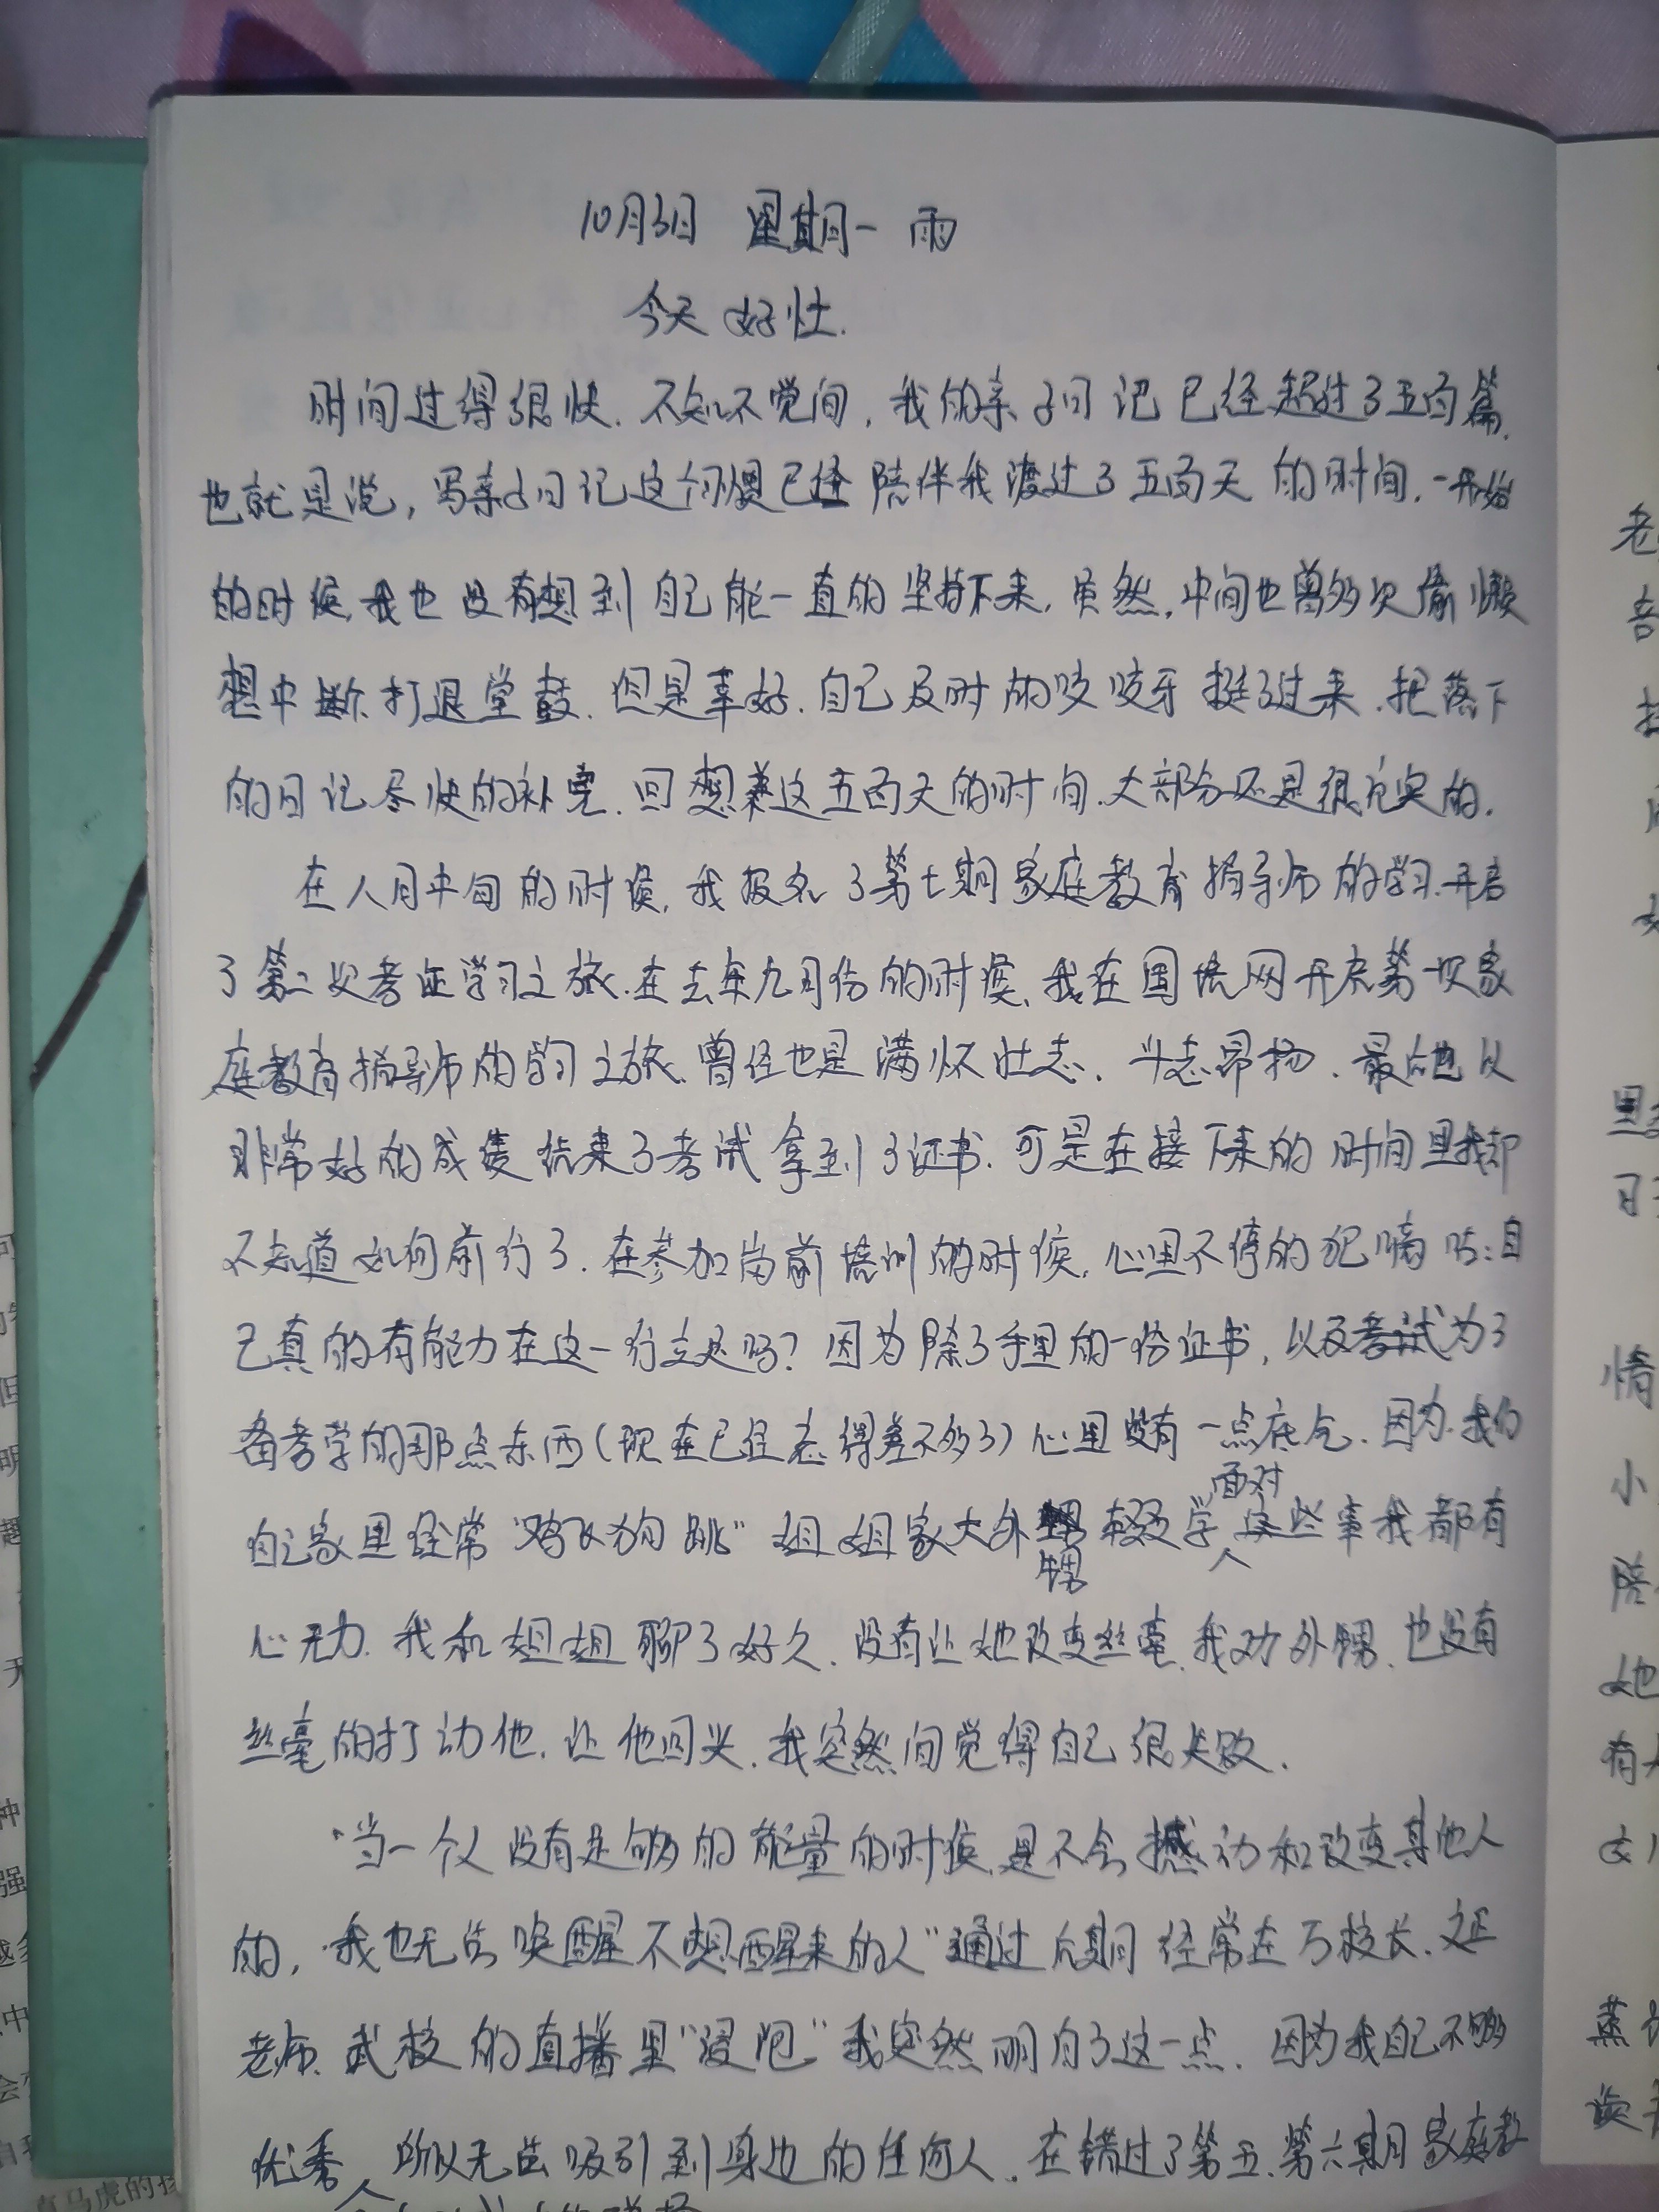 10月3日 星期一 雨
今天好壮.
时间过得很快.不知不觉间,我的亲子日记已经超过了五百篇,
也就是说,写亲子日记这个习惯已经陪伴我渡过了五百天的时间.一开始
的时候,我也没有想到自己能一直的坚持下来.虽然,中间也曾多次偷懒
想中断打退堂鼓.但是幸好.自己及时的咬咬牙挺了过来.把落下
的日记尽快的补完.回想来这五百天的时间.大部分还是很充实的.
在八月中旬的时候,我报名了第七期家庭教育指导师的学习.开启
了第二次考证学习之旅.在去年九月份的时候,我在国培网开启第一次家
庭教育指导师的学习之旅.曾经也是满怀壮志.斗志昂扬.最后也以
非常好的成绩结束了考试拿到了证书.可是在接下来的时间里我却
不知道如何前行了.在参加岗前培训的时候.心里不停的犯嘀咕:自
己真的有能力在这一行立足吗?因为除了手里的一份证书,以及考试为了
备考学的那点东西(现在已经忘得差不多了)心里没有一点底气.因为.我们
自己家里经常"鸡飞狗跳"姐姐家大外甥辍学面对这些事我都有
心无力.我和姐姐聊了好久.没有让她改变丝毫.我劝外甥.也没有
丝毫的打动他.让他回头.我突然间觉得自己很失败.
"当一个人没有足够的能量的时候.是不会撼动和改变其他人
的,我也无法唤醒不想醒来的人"通过后期经常在万校长.文正
老师.武校的直播里"浸泡"我突然明白了这一点.因为我自己不够
优秀,所以无法吸引到身边的任何人.在错过了第五.第六期家庭教